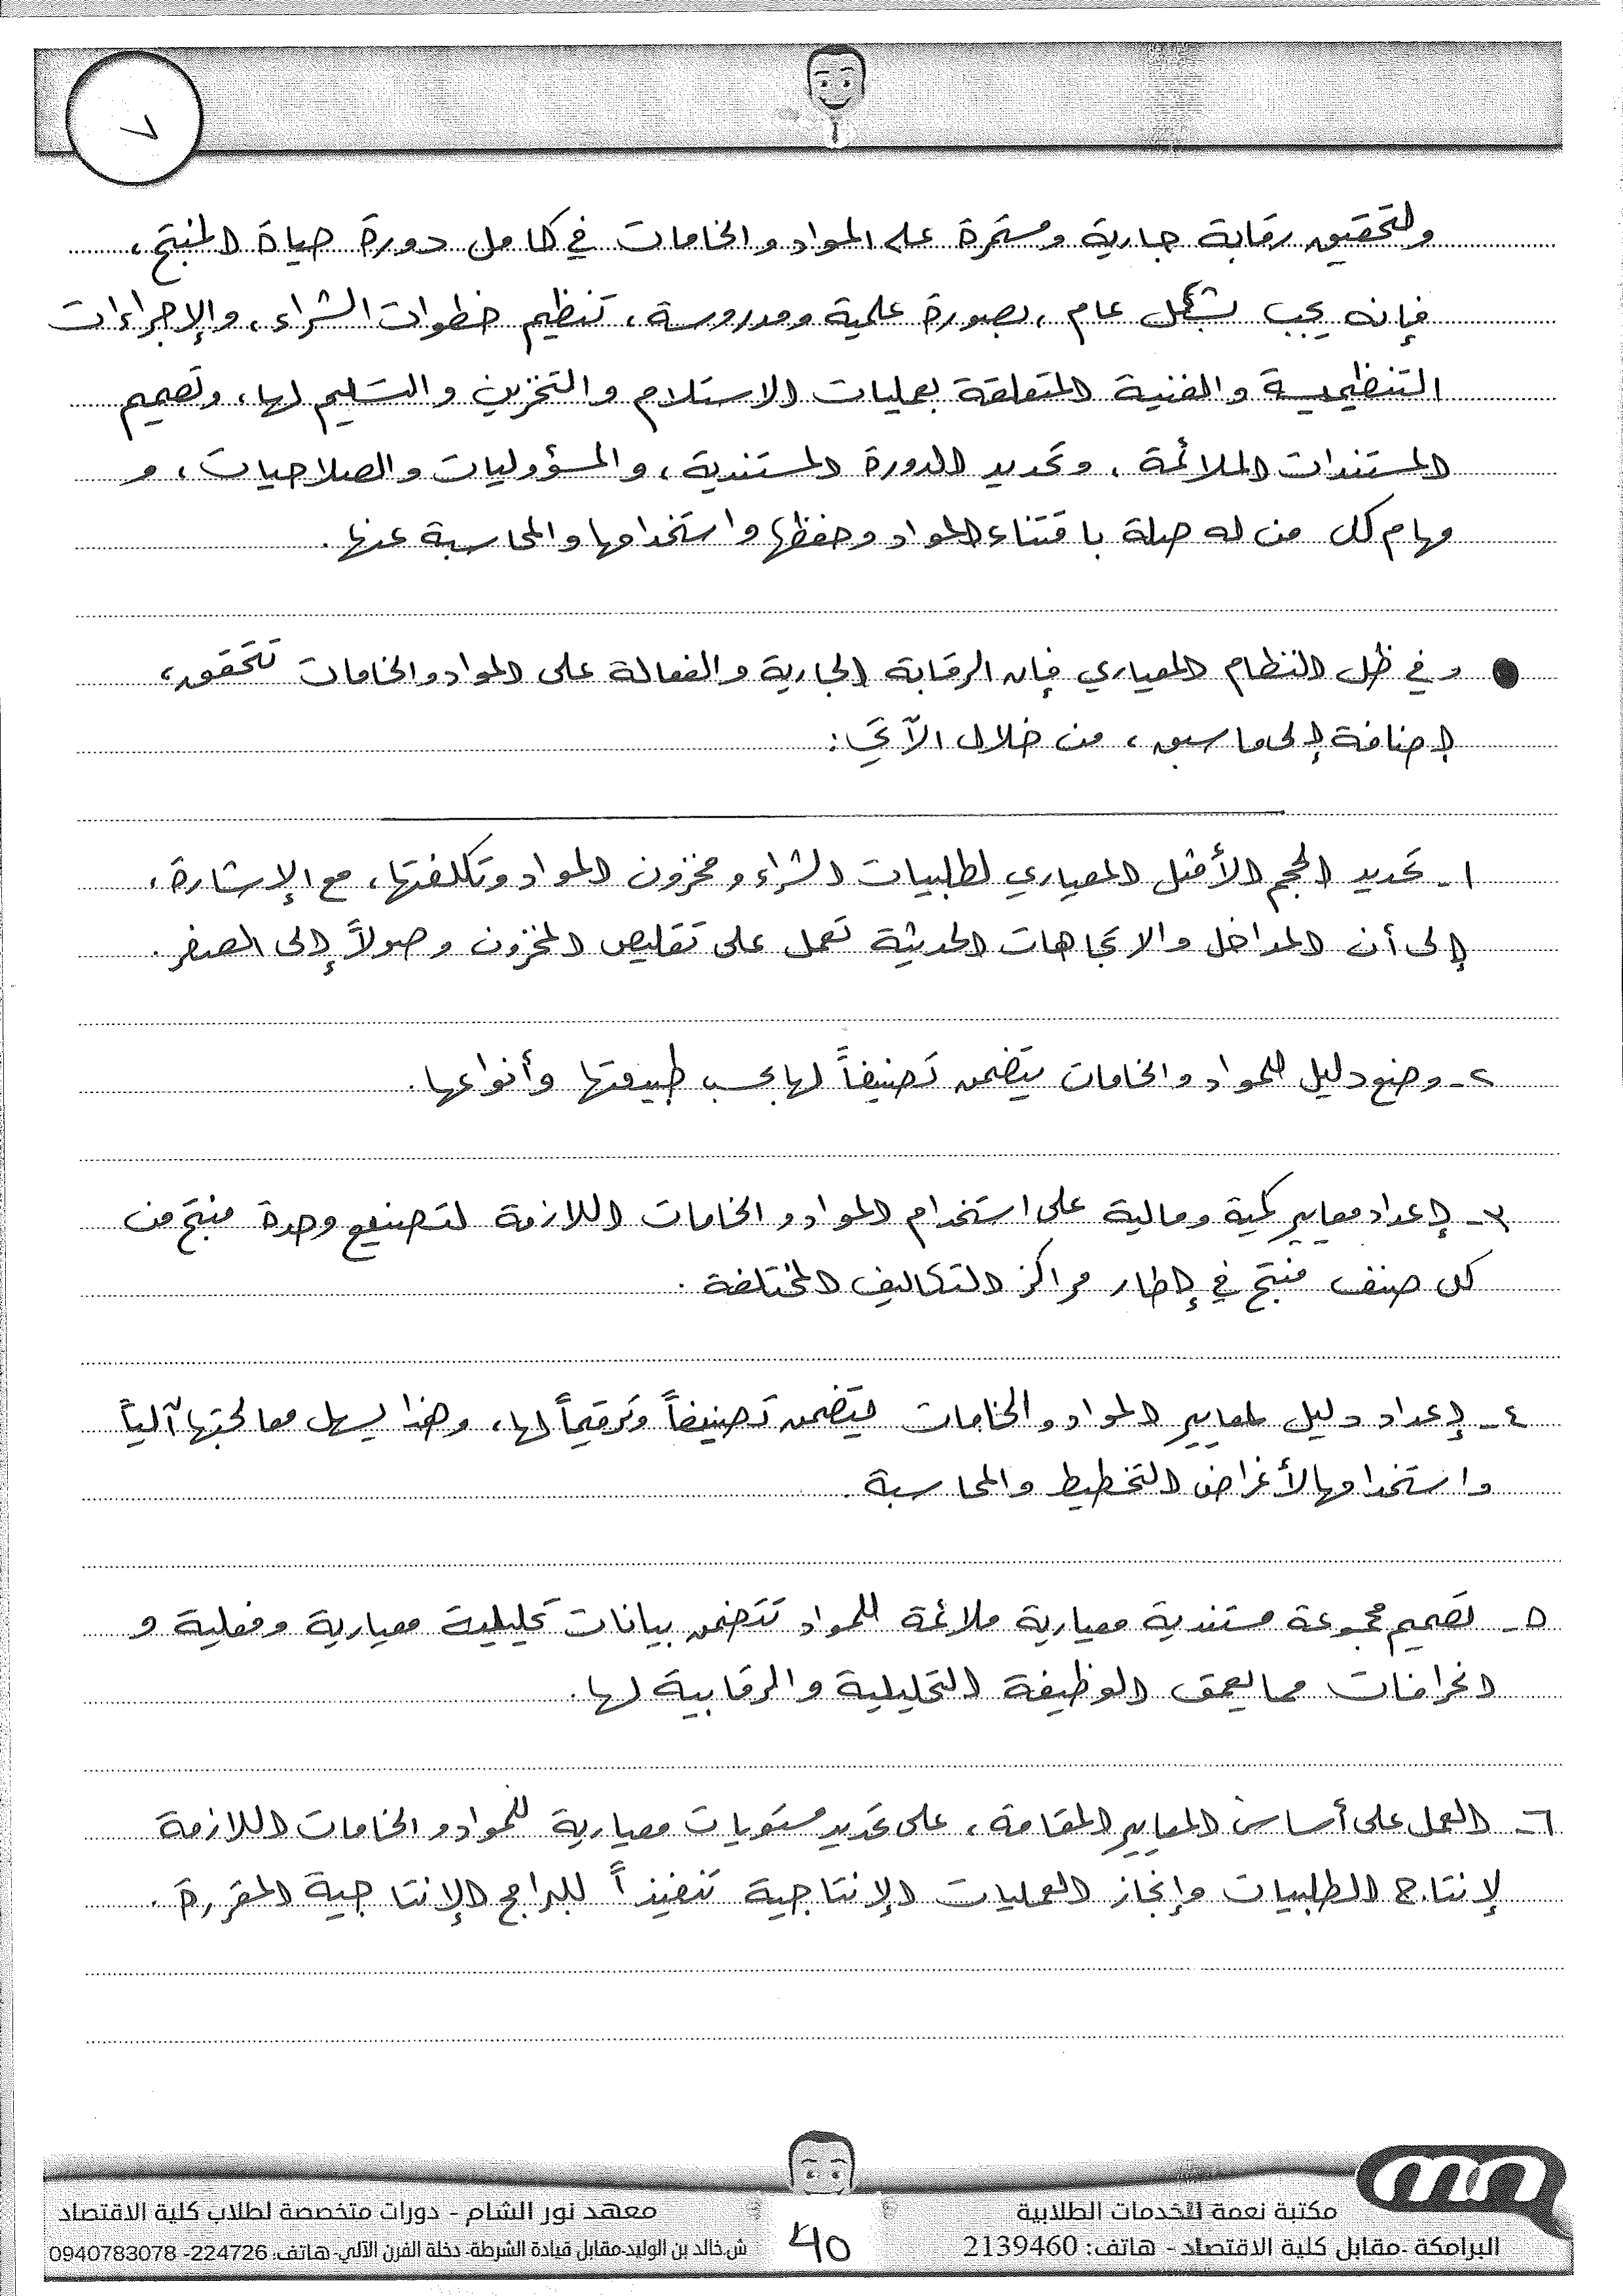 ٧
ولتحقيق رقابة جارية ومستمرة على المواد والخامات في كامل دورة حياة المنتج،
فإنه يجب بشكل عام، بصورة علمية ومدروسة، تنظيم خطوات الشراء، والإجراءات
التنظيمية والفنية المتعلقة بعمليات الاستلام والتخزين والتسليم لها، وتصميم
المستندات الملائمة، وتحديد الدورة المستندية، والمسؤوليات والصلاحيات، و
مهام كل من له صلة باقتناء المواد وحفظها واستخدامها والمحاسبة عنها.
● وفي ظل النظام المعياري فإن الرقابة الجارية والفعالة على المواد والخامات تتحقق،
إضافة إلى ما سبق، من خلال الآتي:
١- تحديد الحجم الأمثل المعياري لطلبيات الشراء ومخزون المواد وتكلفتها، مع الإشارة،
إلى أن المداخل والاتجاهات الحديثة تعمل على تقليص المخزون وصولاً إلى الصفر.
٢- وضع دليل للمواد والخامات يتضمن تصنيفاً لها بحسب طبيعتها وأنواعها.
٣- إعداد معايير كمية ومالية على استخدام المواد والخامات اللازمة لتصنيع وحدة منتج من
كل صنف منتج في إطار مراكز التكاليف المختلفة.
٤- إعداد دليل لمعايير المواد والخامات يتضمن تصنيفاً وترقيماً لها، وهذا يسهل معالجتها آلياً
واستخدامها لأغراض التخطيط والمحاسبة.
٥- تصميم مجموعة مستندية معيارية ملائمة للمواد تتضمن بيانات تحليلية معيارية وفعلية و
انحرافات مما يعمق الوظيفة التحليلية والرقابية لها.
٦- العمل على أساس المعايير المقامة، على تحديد مستويات معيارية للمواد والخامات اللازمة
لإنتاج الطلبيات وإنجاز العمليات الإنتاجية تنفيذاً للبرامج الإنتاجية المقررة.
مكتبة نعمة للخدمات الطلابية
البرامكة -مقابل كلية الاقتصاد - هاتف: 2139460
٤٥
معهد نور الشام - دورات متخصصة لطلاب كلية الاقتصاد
ش.خالد بن الوليد-مقابل قيادة الشرطة- دخلة الفرن الآلي-هاتف: 224726- 0940783078